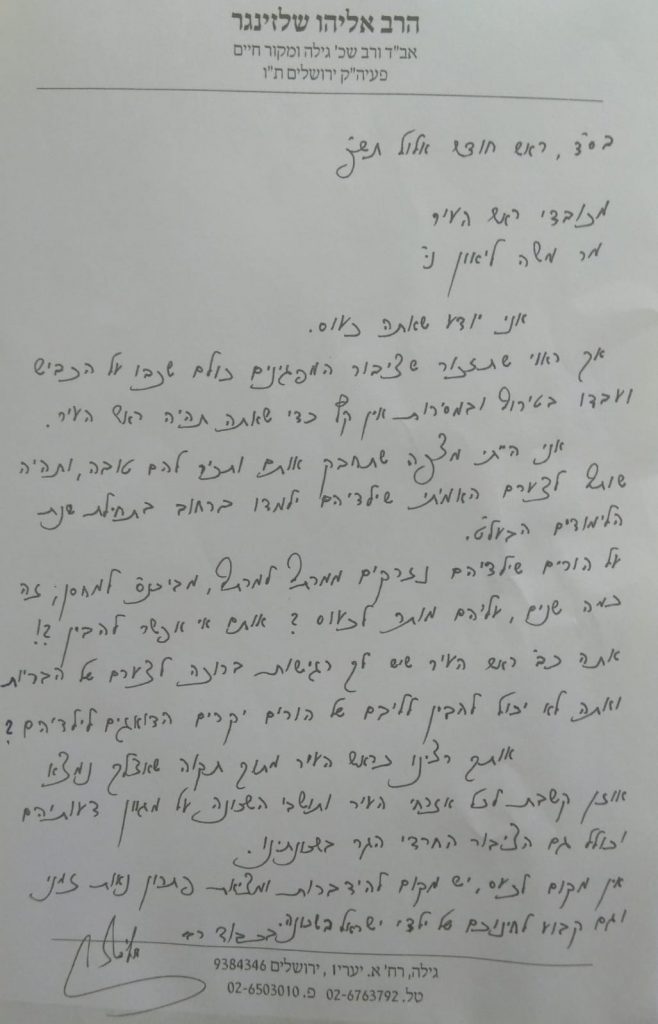 הרב אליהו שלזינגר
אב"ד ורב שכ' גילה ומקור חיים
פעיה"ק ירושלים ת"ו
בס"ד, ראש חודש אלול תש"פ
מכובדי ראש העיר
מר משה ליאון נ"י
אני יודע שאתה כעוס.
אך ראוי שתזכור שציבור המפגינים כולם שכבו על הכביש
ועבדו בטירוף ובמסירות אין קץ כדי שאתה תהיה ראש העיר.
אני הייתי מצפה שתחבק אותם ותכיר להם טובה, ותהיה
שותף לצערם האמיתי שילדיהם ילמדו ברחוב בתחילת שנת
הלימודים הבעל"ט.
על הורים שילדיהם נזרקים ממרתף למרתף, ממחסן למחסן, זה
כמה שנים, עליהם מותר לכעוס? אותם אי אפשר להבין?!
אתה כב' ראש העיר שיש לך רגישות ברוכה לצערם של הבריות
ואתה לא יכול להבין לליבם של הורים יקרים הדואגים לילדיהם?
אותך רצינו כראש העיר מתוך תקוה שאצלך נמצא
אוזן קשבת לכל אזרחי העיר ותושבי השכונה על מגוון דעותיהם
וכולל גם הציבור החרדי הגר בשכונתינו.
אין מקום לכעס, יש מקום להידברות ומציאת פתרון נאות זמני
וגם קבוע לחינוכם של ילדי ישראל בשכונה.
בכבוד רב
גילה, רח' א. יערי 1, ירושלים 9384346
טל. 02-6763792 פ. 02-6503010